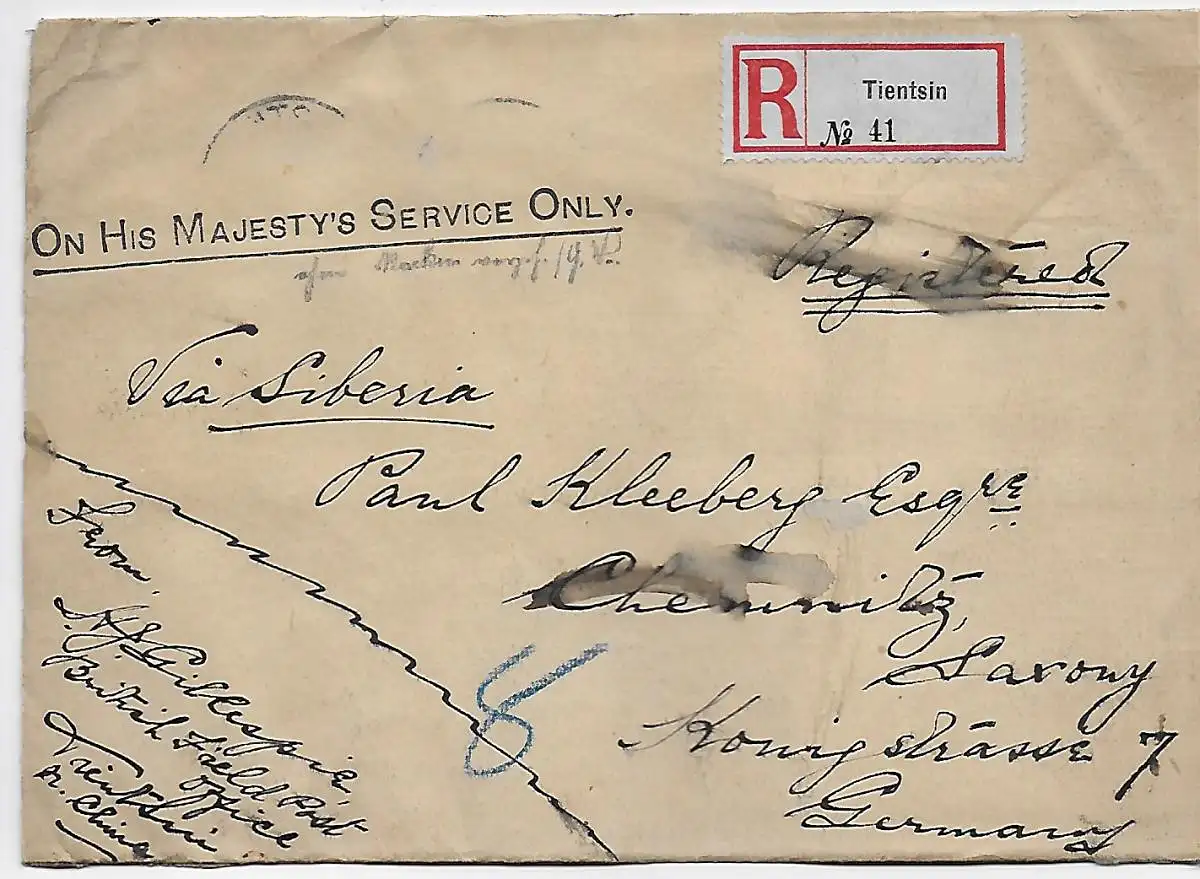 R
Tientsin
№ 41
ON HIS MAJESTY'S SERVICE ONLY.
Registered
Via Siberia
Paul Kleeberg Esqre
Chemnitz,
Saxony
Konigstrasse 7
Germany
From
Gillespie,
British Field Post
Office
Tientsin
N. China
8